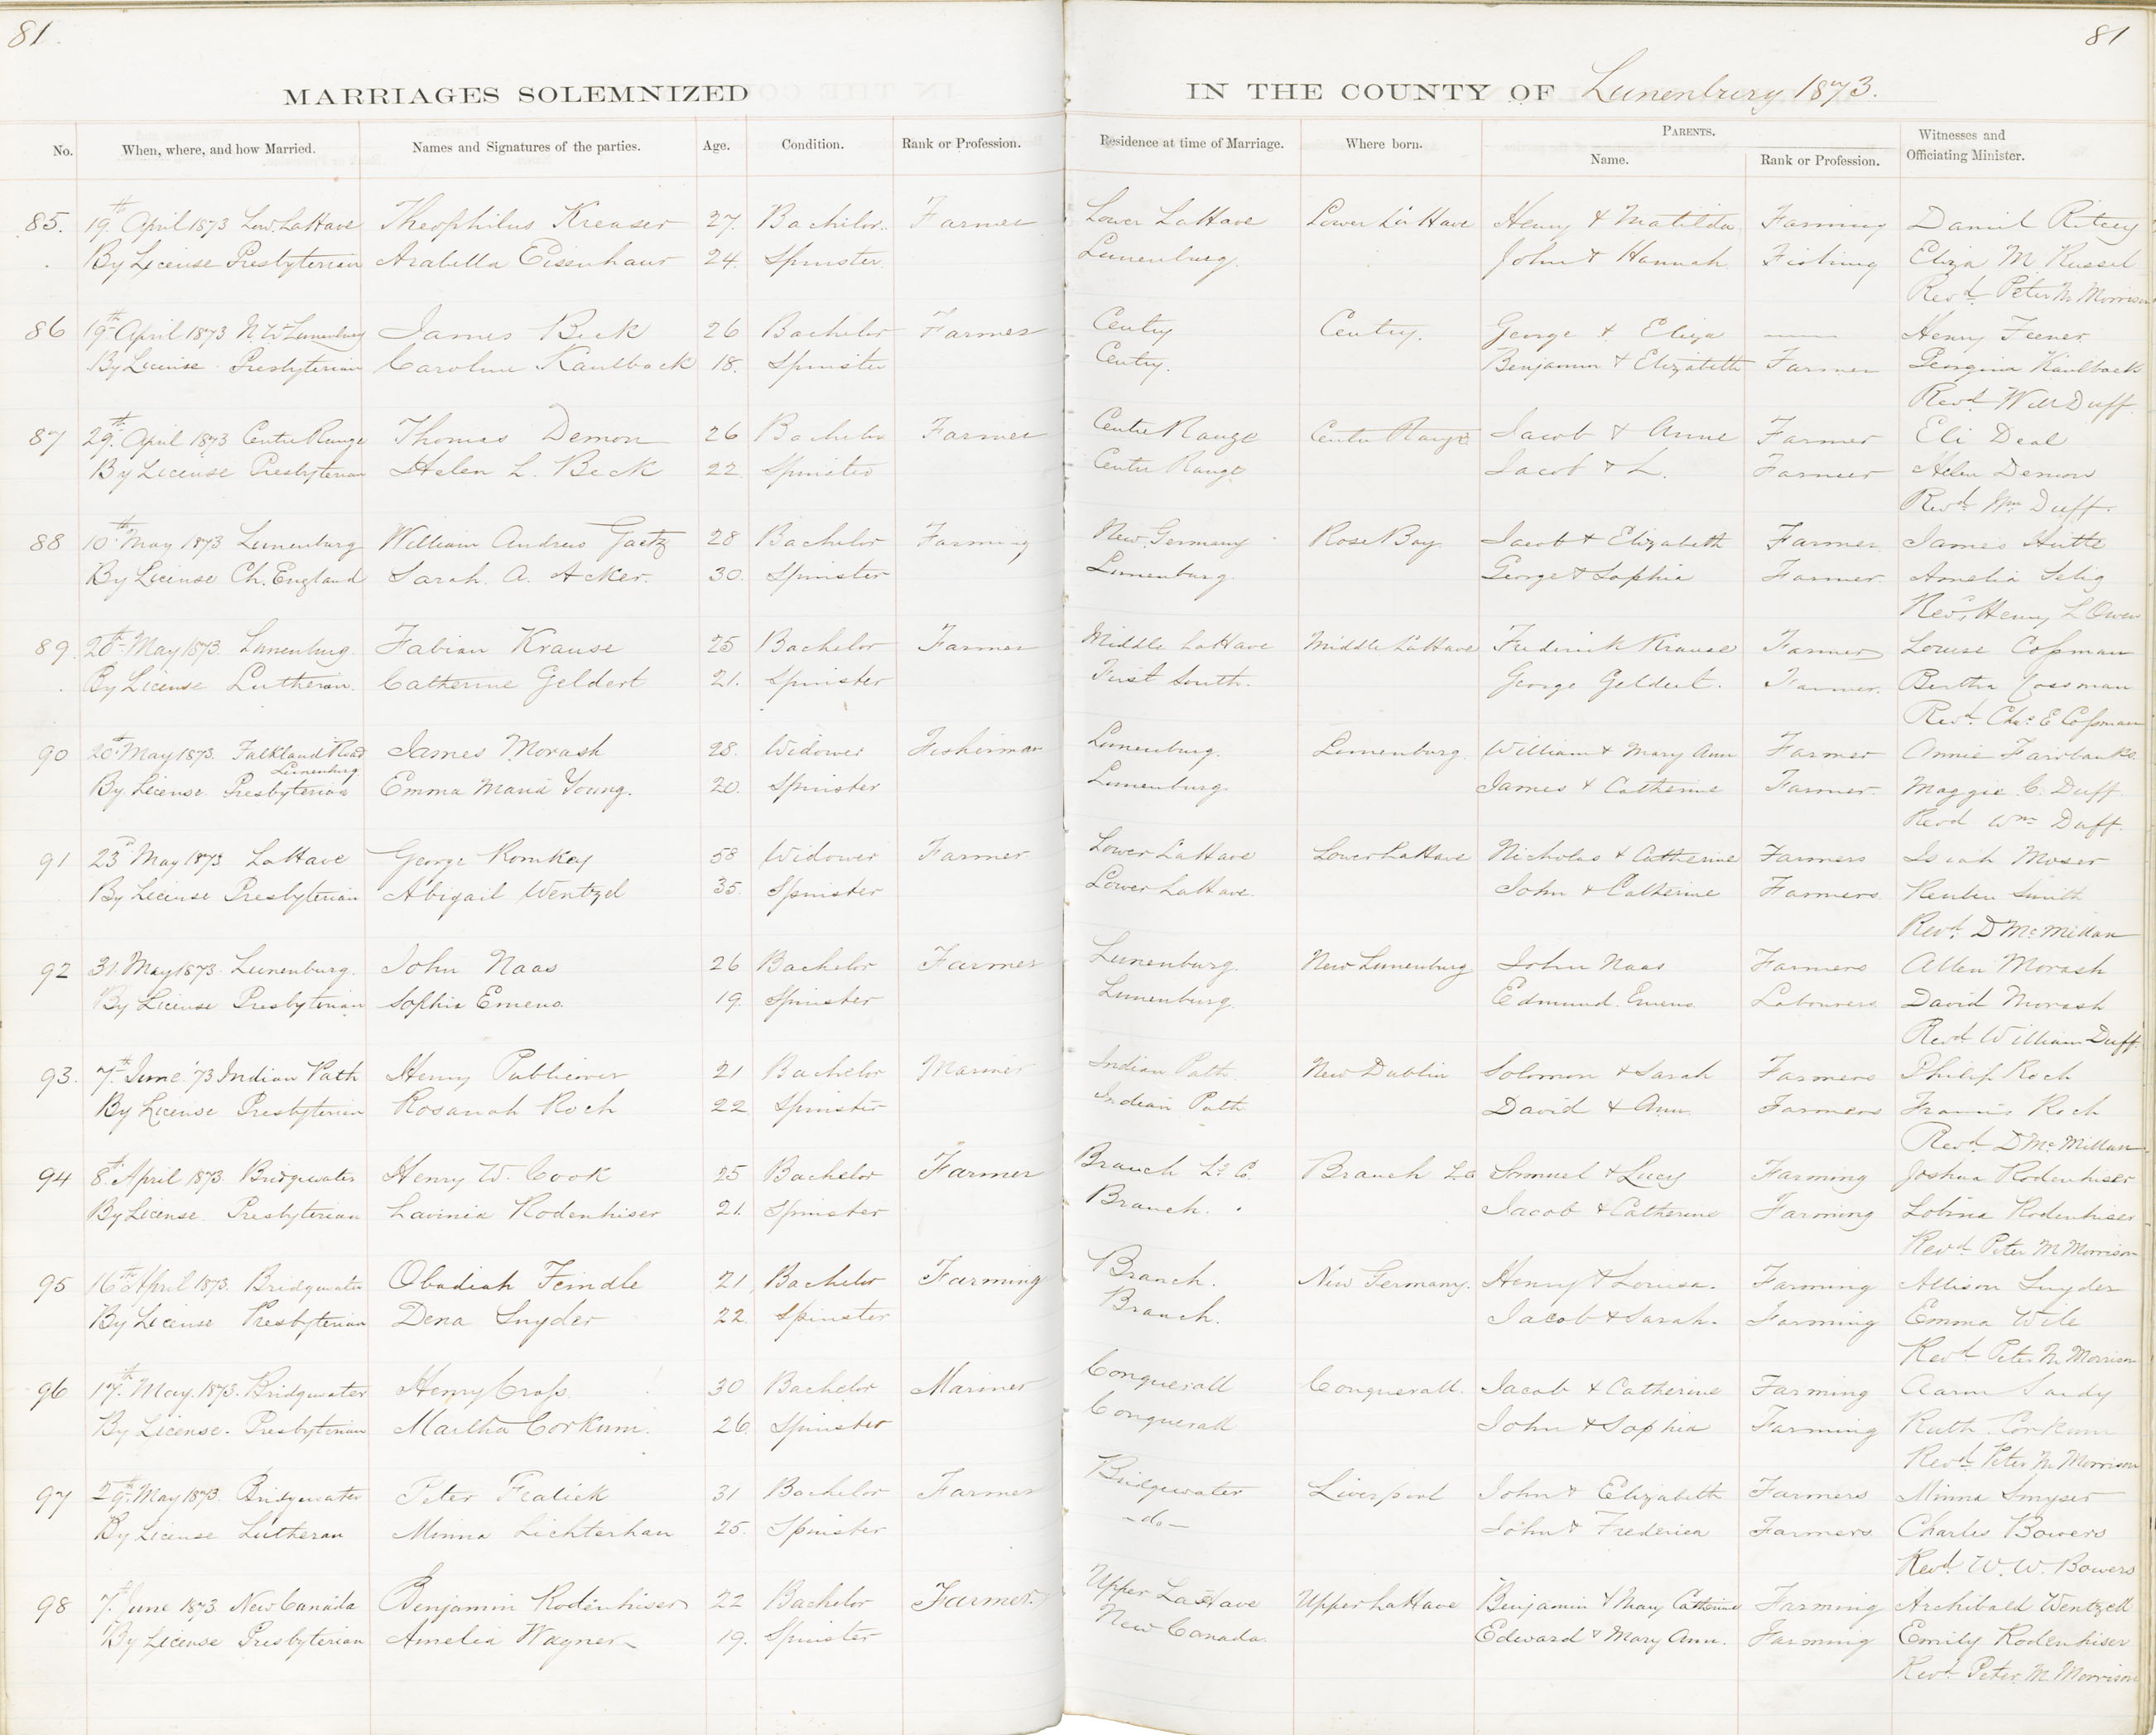 81.
81
MARRIAGES SOLEMNIZED IN THE COUNTY OF Lunenburg 1873.
No. When, where, and how Married. Names and Signatures of the parties. Age. Condition. Rank or Profession. Residence at time of Marriage. Where born. PARENTS. Name. Rank or Profession. Witnesses and Officiating Minister.
85. 19th April 1873 Low. LaHave Theophilus Kreaser 27. Bachelor. Farmer Lower LaHave Lower LaHave Henry & Matilda Farming Daniel Ritcey
By License Presbyterian Arabella Eisenhaur 24. Spinster. Lunenburg. John & Hannah Fishing Eliza M. Russel
Revd. Peter M. Morrison
86 19th April 1873 N.W. Lunenburg James Beck 26 Bachelor Farmer Centry Centry. George & Eliza — Henry Feener
By License Presbyterian Caroline Kaulback 18. Spinster Centry. Benjamin & Elizabeth Farmer Georgina Kaulback
Revd. Will Duff.
87 29th April 1873 Centre Range Thomas Demon 26 Bachelor Farmer Centre Range Centre Range Jacob & Anne Farmer Eli Deal
By License Presbyterian Helen L. Beck 22 Spinster Centre Range Jacob & L. Farmer Helen Demon
Revd. Wm Duff.
88 10th May 1873 Lunenburg William Andrew Gaetz 28 Bachelor Farming New Germany Rose Bay Jacob & Elizabeth Farmer James Hutte
By License Ch. England Sarah. A. Acker. 30. Spinster Lunenburg. George & Sophia Farmer. Amelia Selig
Revd. Henry L Owen
89. 20th May 1873. Lunenburg. Fabian Krause 25 Bachelor Farmer Middle LaHave Middle LaHave Frederick Krause Farmer Louise Coſsman
By License Lutheran. Catherine Geldert 21. Spinster First South. George Geldert. Farmer. Bertha Cossman
Revd. Chas. E Coſsman
90 20th May 1873. Falkland Road Lunenburg James Morash 28. Widower Fisherman Lunenburg. Lunenburg. William & Mary Ann Farmer Annie Fairbanks.
By License. Presbyterian Emma Maria Young. 20. Spinster Lunenburg. James & Catherine Farmer. Maggie C. Duff
Revd Wm Duff.
91 23d May 1873 LaHave George Romkey 58 Widower Farmer Lower LaHave Lower LaHave Nicholas & Catherine Farmers Isiah Moser
By License Presbyterian Abigail Wentzel 35. Spinster Lower LaHave. John & Catherine Farmers. Reuben Smith
Revd. D McMillan
92 31. May 1873. Lunenburg. John Naas 26 Bachelor Farmer Lunenburg. New Lunenburg John Naas Farmers Allen Morash
By License Presbyterian Sophia Emeno. 19. Spinster Lunenburg. Edmund. Emeno Labourers David Morash
Revd William Duff.
93. 7th June '73 Indian Path Henry Publicover 21 Bachelor Mariner Indian Path New Dublin Solomon & Sarah Farmers Philip Roch
By License Presbyterian Rosanah Roch 22 Spinster Indian Path David & Ann Farmers Francis Roch
Revd. D McMillan
94 8th April 1873. Bridgewater Henry W. Cook 25 Bachelor Farmer Branch L. Co. Branch La Samuel & Lucy Farming Joshua Rodenhiser
By License. Presbyterian Lavinia Rodenhiser 21. Spinster Branch. Jacob & Catherine Farming Lobina Rodenhiser
Revd Peter M Morrison
95 16th April 1873. Bridgewater Obadiah Feindle 21 Bachelor Farming Branch. New Germany. Henry & Louisa. Farming Allison Snyder
By License Presbyterian Dena Snyder 22. Spinster Branch. Jacob & Sarah. Farming Emma Wile
Revd. Peter M. Morrison
96 17th May. 1873. Bridgewater Henry Croſs. 30 Bachelor Mariner Conquerall Conquerall. Jacob & Catherine Farming Aaron Sardy
By License. Presbyterian Martha Corkum. 26. Spinster Conquerall John & Sophia Farming Ruth Corkum
Revd. Peter M. Morrison
97 29th May 1873. Bridgewater Peter Fralick 31 Bachelor Farmer Bridgewater Liverpool John & Elizabeth Farmers Minna Smyser
By License Lutheran Minna Lichterhan 25. Spinster -do- John & Frederica Farmers Charles Bowers
Revd. W. W. Bowers
98 7th June 1873. New Canada Benjamin Rodenhiser 22 Bachelor Farmer. Upper LaHave Upper LaHave Benjamin & Mary Catherine Farming Archibald Wentzell
By License Presbyterian Amelia Wagner 19. Spinster New Canada. Edward & Mary Ann. Farming Emily Rodenhiser
Revd. Peter. M. Morrison